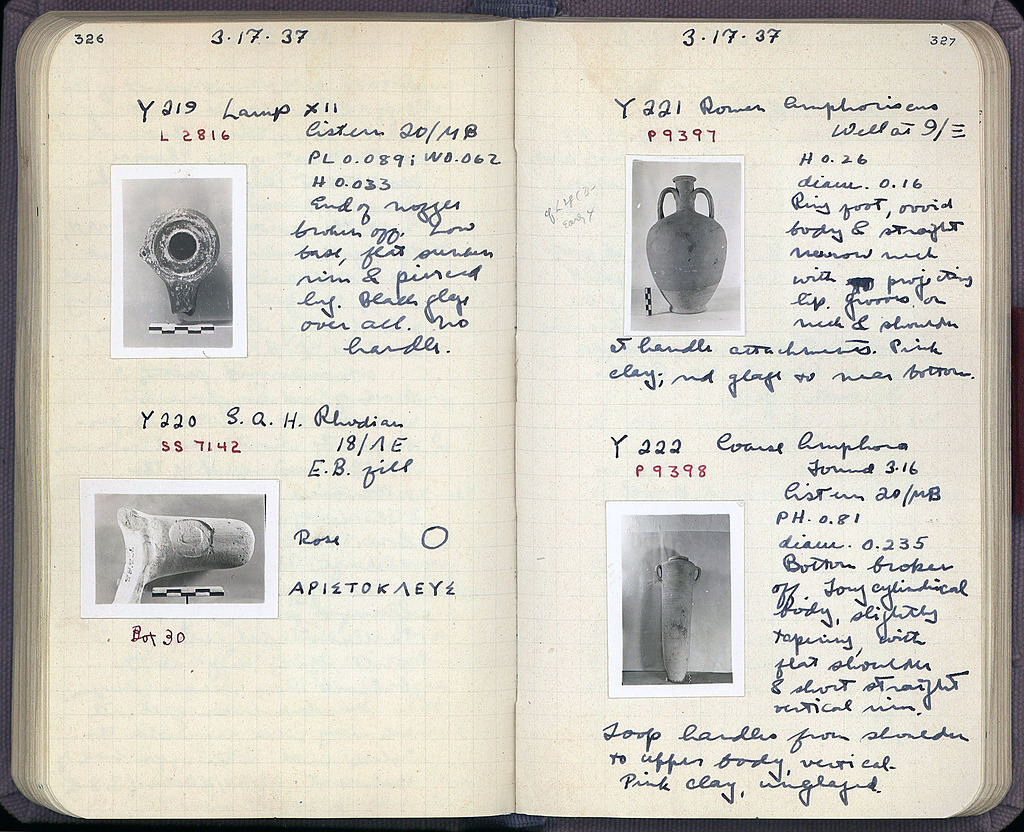 326
3·17·37
Y 219 Lamp XII
L 2816
Cistern 20/ΜΒ
PL 0.089; WD. 0.062
H 0.033
End of nozzle
broken off. Low
base, flat sunken
rim & pierced
lug. Black glaze
over all. No
handle.
Y 220 S. A. H. Rhodian
SS 7142
18/ΛΕ
E.B. fill
Rose
ΑΡΙΣΤΟΚΛΕΥΣ
Box 30
3·17·37
327
Y 221 Roman Amphoriscus
P 9397
Well at 9/Ξ
H 0.26
diam. 0.16
Ring foot, ovoid
body & straight
narrow neck
with projecting
lip. Grooves on
neck & shoulder
at handle attachments. Pink
clay; red glaze to near bottom.
Early
Y 222 Coarse Amphora
P 9398
Found 3·16
Cistern 20/ΜΒ
PH. 0.81
diam. 0.235
Bottom broken
off. Long cylindrical
body, slightly
tapering, with
flat shoulder
& short straight
vertical rim.
Loop handles from shoulder
to upper body, vertical.
Pink clay, unglazed.